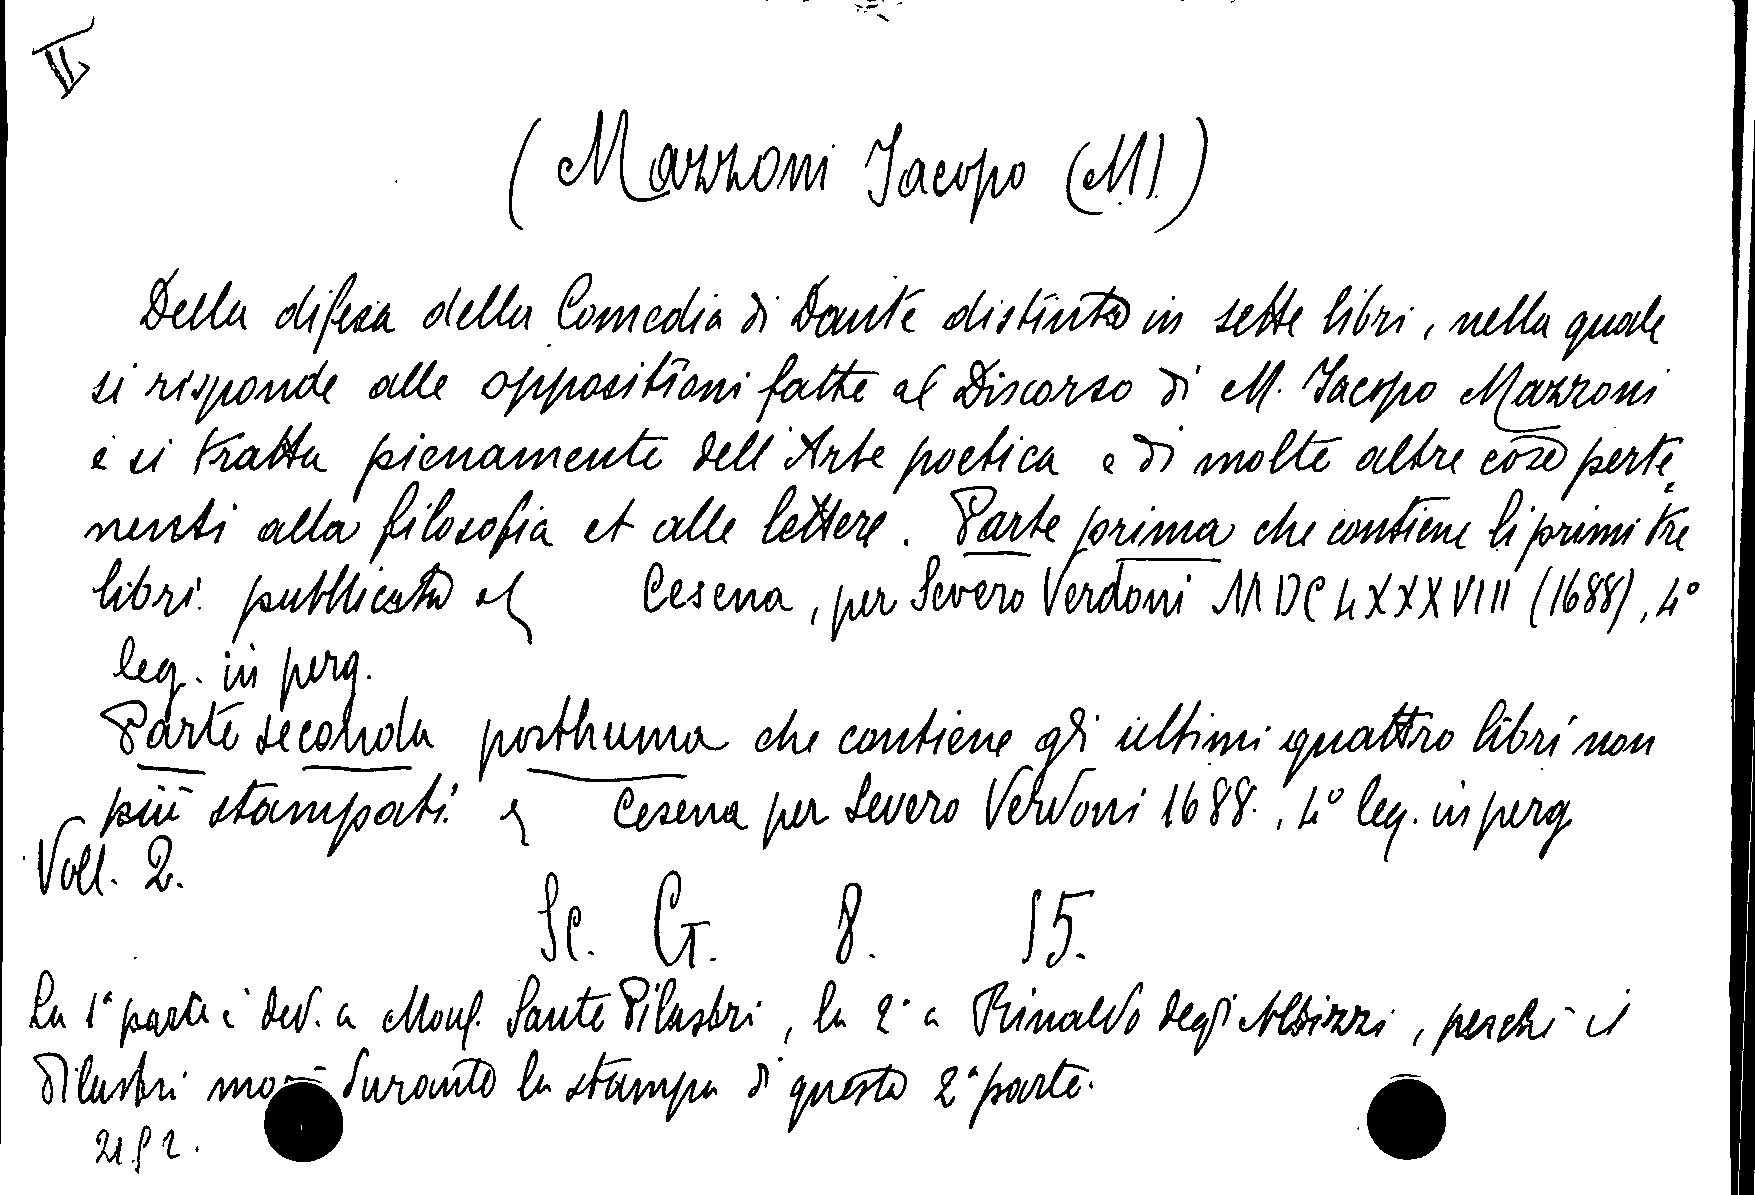 II
(Mazzoni Jacopo (M).)
Della difesa della Comedia di Dante distinta in sette libri, nella quale
si risponde alle oppositioni fatte al Discorso di M. Jacopo Mazzoni
e si tratta pienamente dell'Arte poetica e di molte altre cose perte,
nenti alla filosofia et alle lettere. Parte prima che contiene li primi tre
libri. pubblicata Cesena, per Severo Verdoni MDCLXXXVIII (1688), 4°
leg. in perg.
Parte seconda posthuma che contiene gli ultimi quattro libri non
più stampati. Cesena per Severo Verdoni 1688., 4° leg. in perg
Voll. 2.
Sc. G. 8. 15.
La 1ª parte è ded. a Mons. Sante Pilastri, la 2ª a Rinaldo degli Albizzi, perchè il
Pilastri morì durante la stampa di questa 2ª parte.